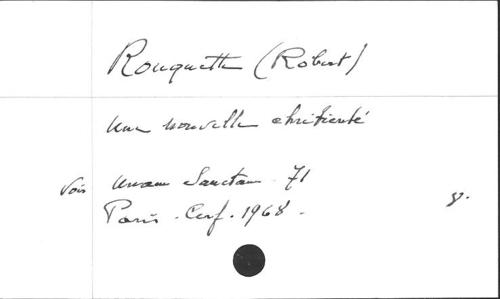 Rouquette (Robert)
Une nouvelle chrétienté
Voir Unam Sanctam - 71
Paris - Cerf - 1968 - 8°